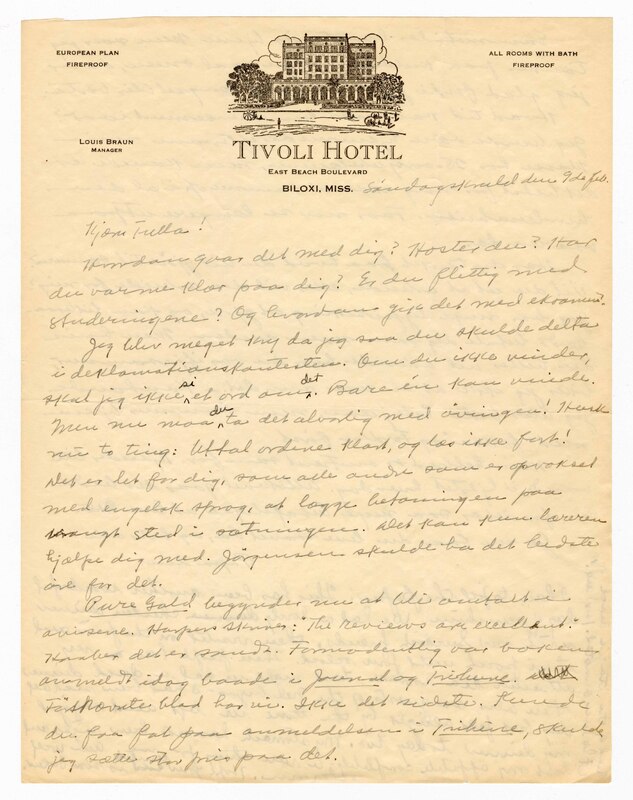 EUROPEAN PLAN
FIREPROOF
ALL ROOMS WITH BATH
FIREPROOF
LOUIS BRAUN
MANAGER
TIVOLI HOTEL
EAST BEACH BOULEVARD
BILOXI, MISS.
Söndagskveld den 9de feb.
Kjære Tulla!
Hvordan gaar det med dig? Hoster du? Har
du varme klær paa dig? Er du flittig med
studeringene? Og hvordan gik det med eksamen?
Jeg blev meget kry da jeg saa du skulde delta
i deklamationskontesten. Om du ikke vinder,
skal jeg ikke si et ord om det. Bare én kan vinde.
Men nu maa du ta det alvorlig med övingen! Husk
nu to ting: Uttal ordene klart, og læs ikke fort!
Det er let for dig, som alle andre som er opvokset
med engelsk sprog, at lægge betoningen paa
vrangt sted i sætningen. Det kan kun læreren
hjælpe dig med. Jörgensen skulde ha det bedste
öre for det.
Pure Gold begynder nu at bli omtalt i
avisene. Harpers skriver: "The reviews are excellent."
Kanske det er sandt. Formodentlig var boken
anmeldt idag baade i Journal og Tribune.
Förstnævnte blad har vi. Ikke det sidste. Kunde
du faa fat paa anmeldelsen i Tribune, skulde
jeg sætte stor pris paa det.